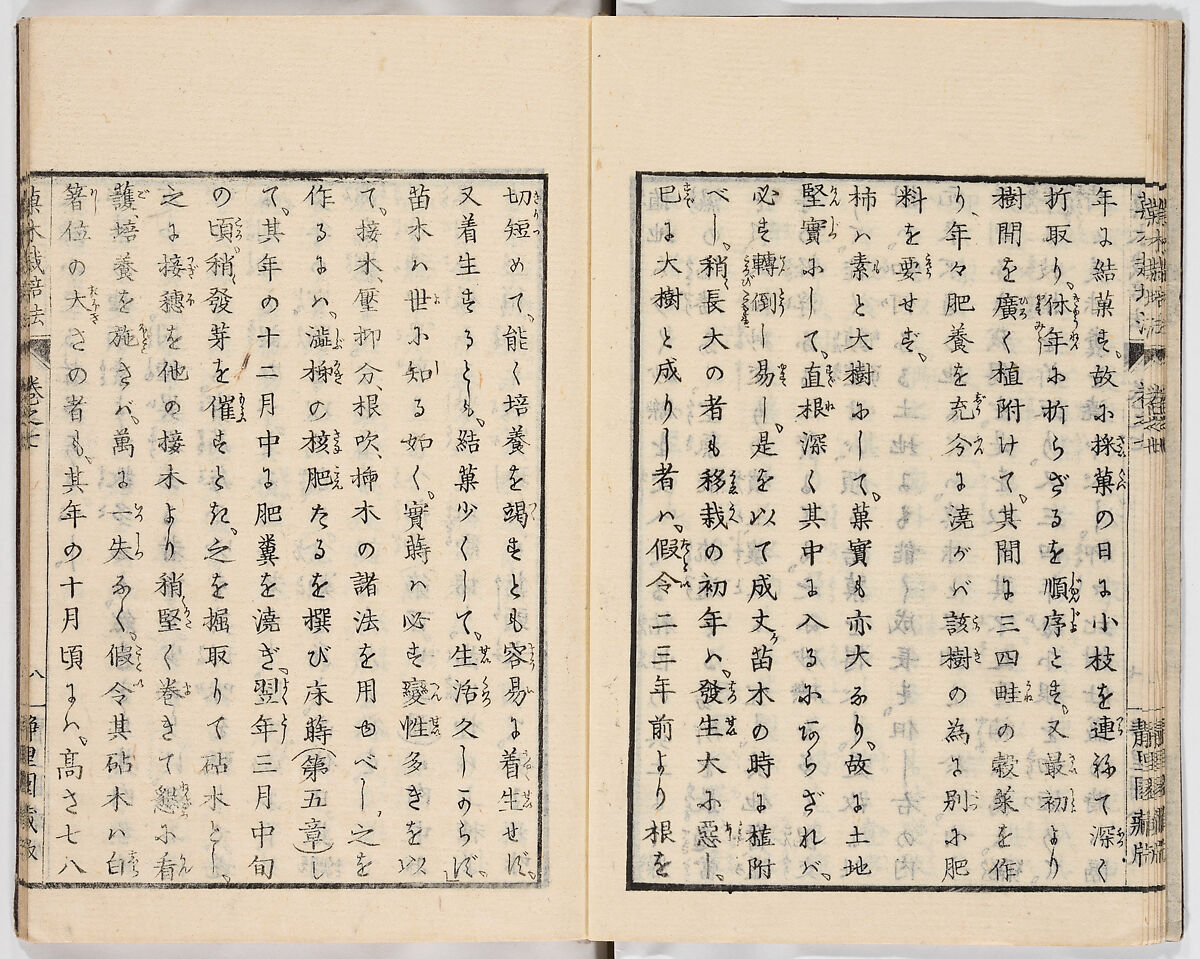 年に結菓す、故に採菓の日に小枝を連ねて深く
折取り、休年に折らざるを順序とす、又最初より
樹間を廣く植附けて、其間に三四畦の穀菜を作
り、年々肥養を充分に澆がバ該樹の為に別に肥
料を要せず、
柿ハ素と大樹にして、菓實も亦大なり、故に土地
堅實にして、直根深く其中に入るにあらざれバ、
必ず轉倒し易し、是を以て成丈苗木の時に植附
べし、稍長大の者も移栽の初年ハ、發生大に惡し、
已に大樹と成りし者ハ、假令二三年前より根を
切短めて、能く培養を竭すとも容易に着生せず、
又着生するとも、結菓少くして、生活久しからず、
苗木ハ世に知る如く、實蒔ハ必ず變性多きを以
て、接木、壓抑分、根吹、挿木の諸法を用ゆべし、之を
作るにハ、澁柿の核肥たるを撰び床蒔(第五章)し
て、其年の十二月中に肥糞を澆ぎ、翌年三月中旬
の頃、稍發芽を催すとき、之を掘取りて砧木とし、
之に接穗を他の接木より稍堅く巻きて懇に看
護、培養を施さバ、萬に一失なく、假令其砧木ハ白
箸位の大さの者も、其年の十月頃にハ、高さ七八
菓木栽培法 巻之七 八 静里園蔵版